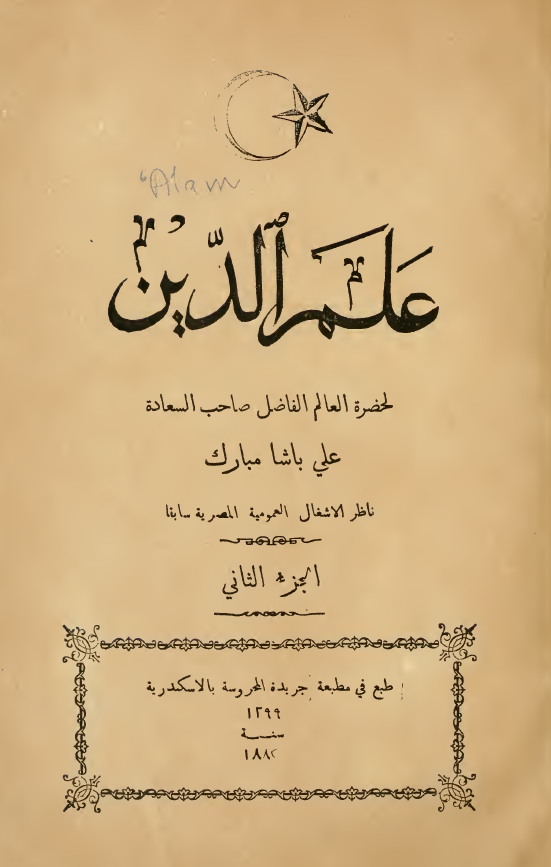 'Alam
علم الدين
لحضرة العالم الفاضل صاحب السعادة
علي باشا مبارك
ناظر الاشغال العمومية المصرية سابقا
الجزء الثاني
طبع في مطبعة جريدة المحروسة بالاسكندرية
١٢٩٩
سنة
١٨٨٢